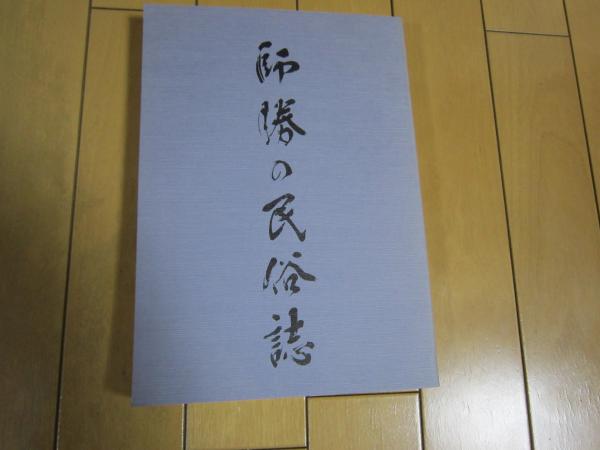 師勝の民俗誌